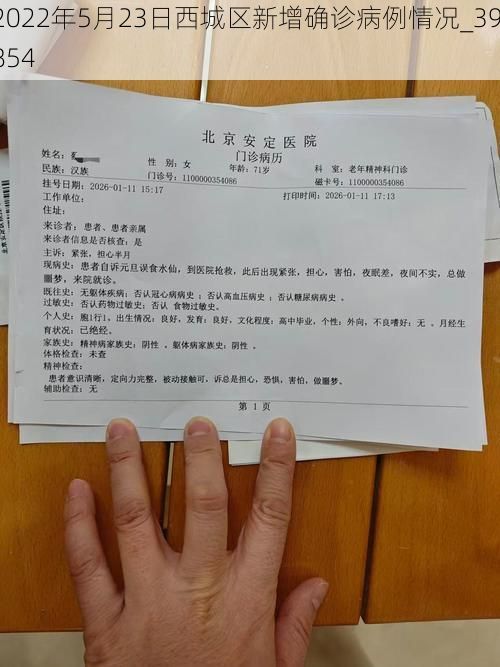 2022年5月23日西城区新增确诊病例情况_39
354
北京安定医院
门诊病历
姓名：
性 别：女
年龄：71岁
科 室：老年精神科门诊
民族：汉族
门诊号：1100000354086
磁卡号：1100000354086
挂号日期：2026-01-11 15:17
打印时间：2026-01-11 17:13
工作单位：
住址：
来诊者：患者、患者亲属
来诊者信息是否核查：是
主诉：紧张，担心半月
现病史：患者自诉元旦误食水仙，到医院抢救，此后出现紧张，担心，害怕，夜眠差，夜间不实，总做
噩梦，来院就诊。
既往史：无躯体疾病；否认冠心病病史 ；否认高血压病史 ；否认糖尿病病史 。
过敏史：否认药物过敏史；否认 食物过敏史。
个人史：胞1行1，出生情况：良好，发育：良好，文化程度：高中毕业，个性：外向，不良嗜好：无 。月经生
育状况：已绝经。
家族史：精神病家族史：阴性 。躯体病家族史：阴性 。
体格检查：未查
精神检查：
患者意识清晰，定向力完整，被动接触可，诉总是担心，恐惧，害怕，做噩梦。
辅助检查：无
第 1 页